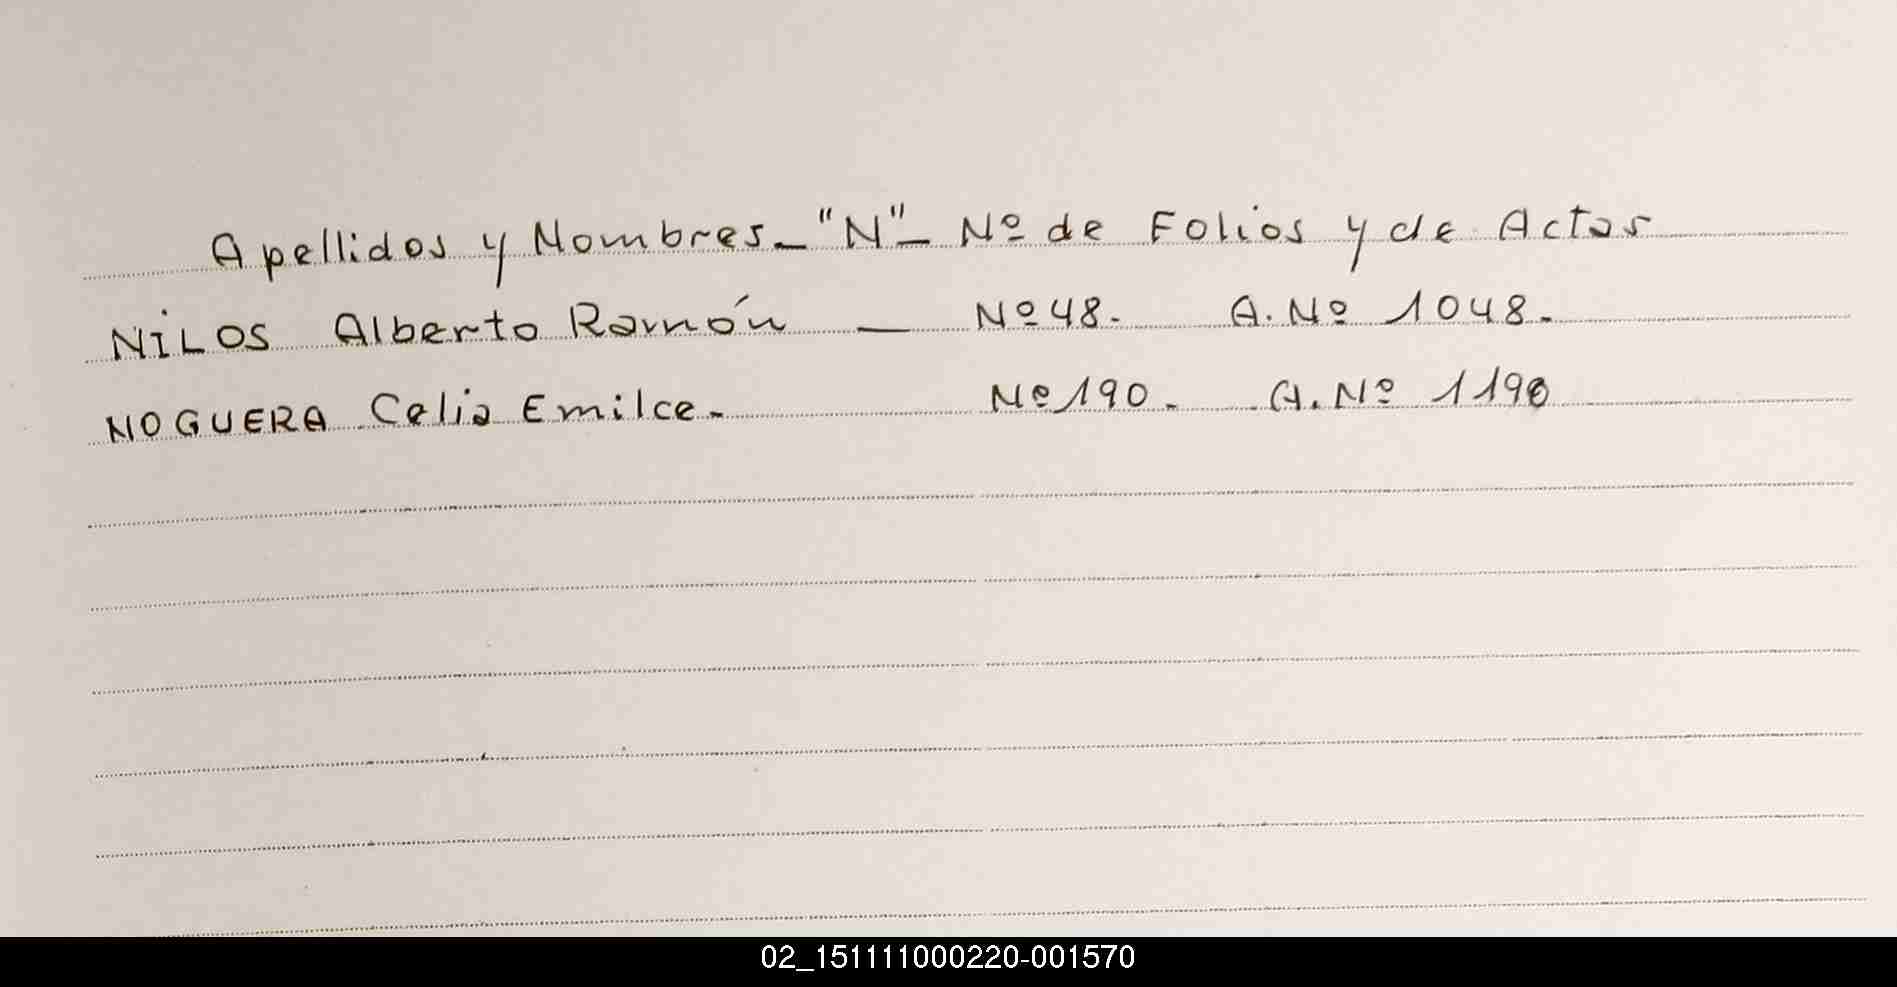 Apellidos y Nombres_ "N"_ Nº de Folios y de Actas
NiLOS Alberto Ramón — Nº 48. A. Nº 1048.
NOGUERA Celia Emilce. Nº 190. A. Nº 1190
02_151111000220-001570